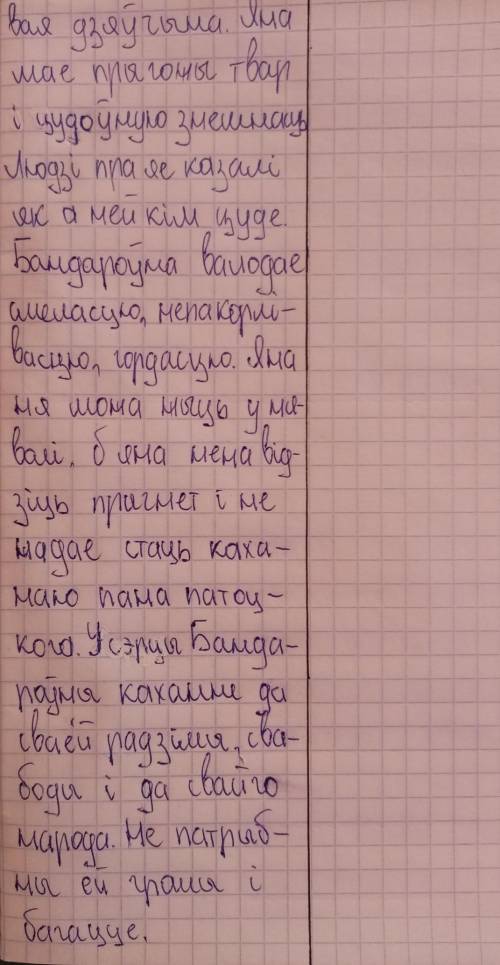 вая дзяўчына. Яна
мае прыгожы твар
і цудоўную знешнасць
Людзі пра яе казалі
як а нейкім цуде.
Бандароўна валодае
смеласцю, непакорлі-
васцю, гордасцю. Яна
няможа жыць у ня-
волі, б яна ненавід-
зіць прыгнет і не
жадае стаць каха-
наю пана патоц-
кого. У сэрцы Банда-
роўны каханне да
сваёй радзімы, сва-
боды і да свайго
народа. Не патрыб-
ны ёй грошы і
багацце.